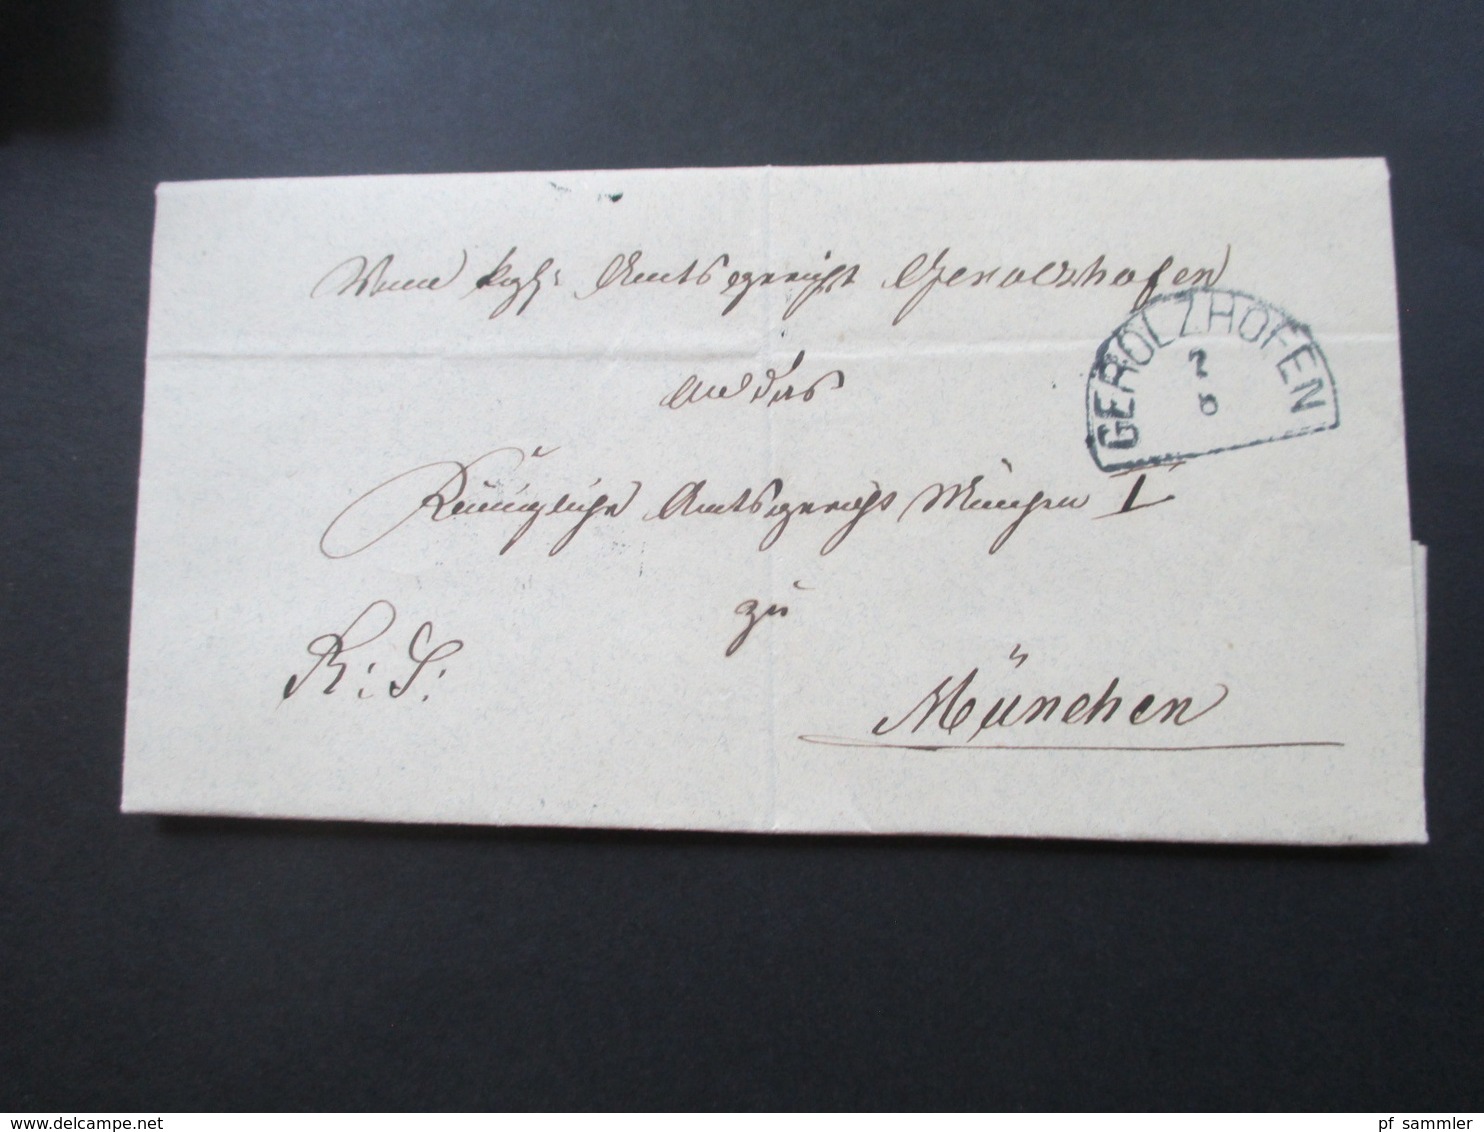 Vom kgl. Amtsgericht Gerolzhofen
GEROLZHOFEN
7
8
An das
Königliche Amtsgericht München I
zu
R: S:
München
delcampe.net
pf_sammler